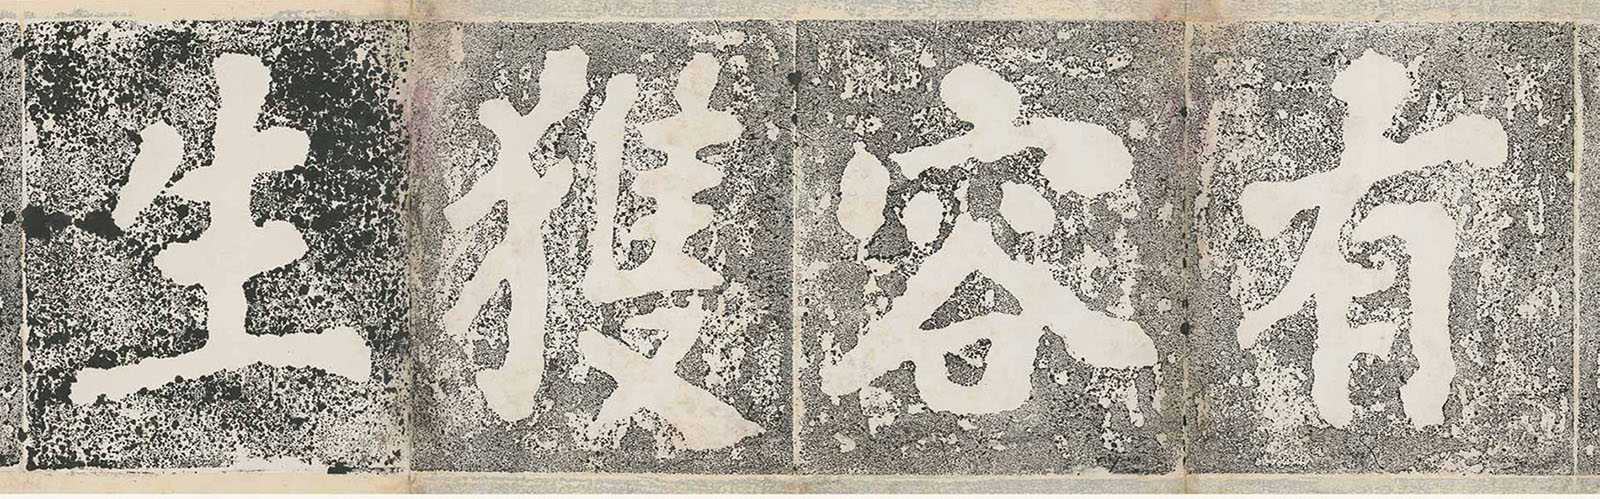 有容獲生